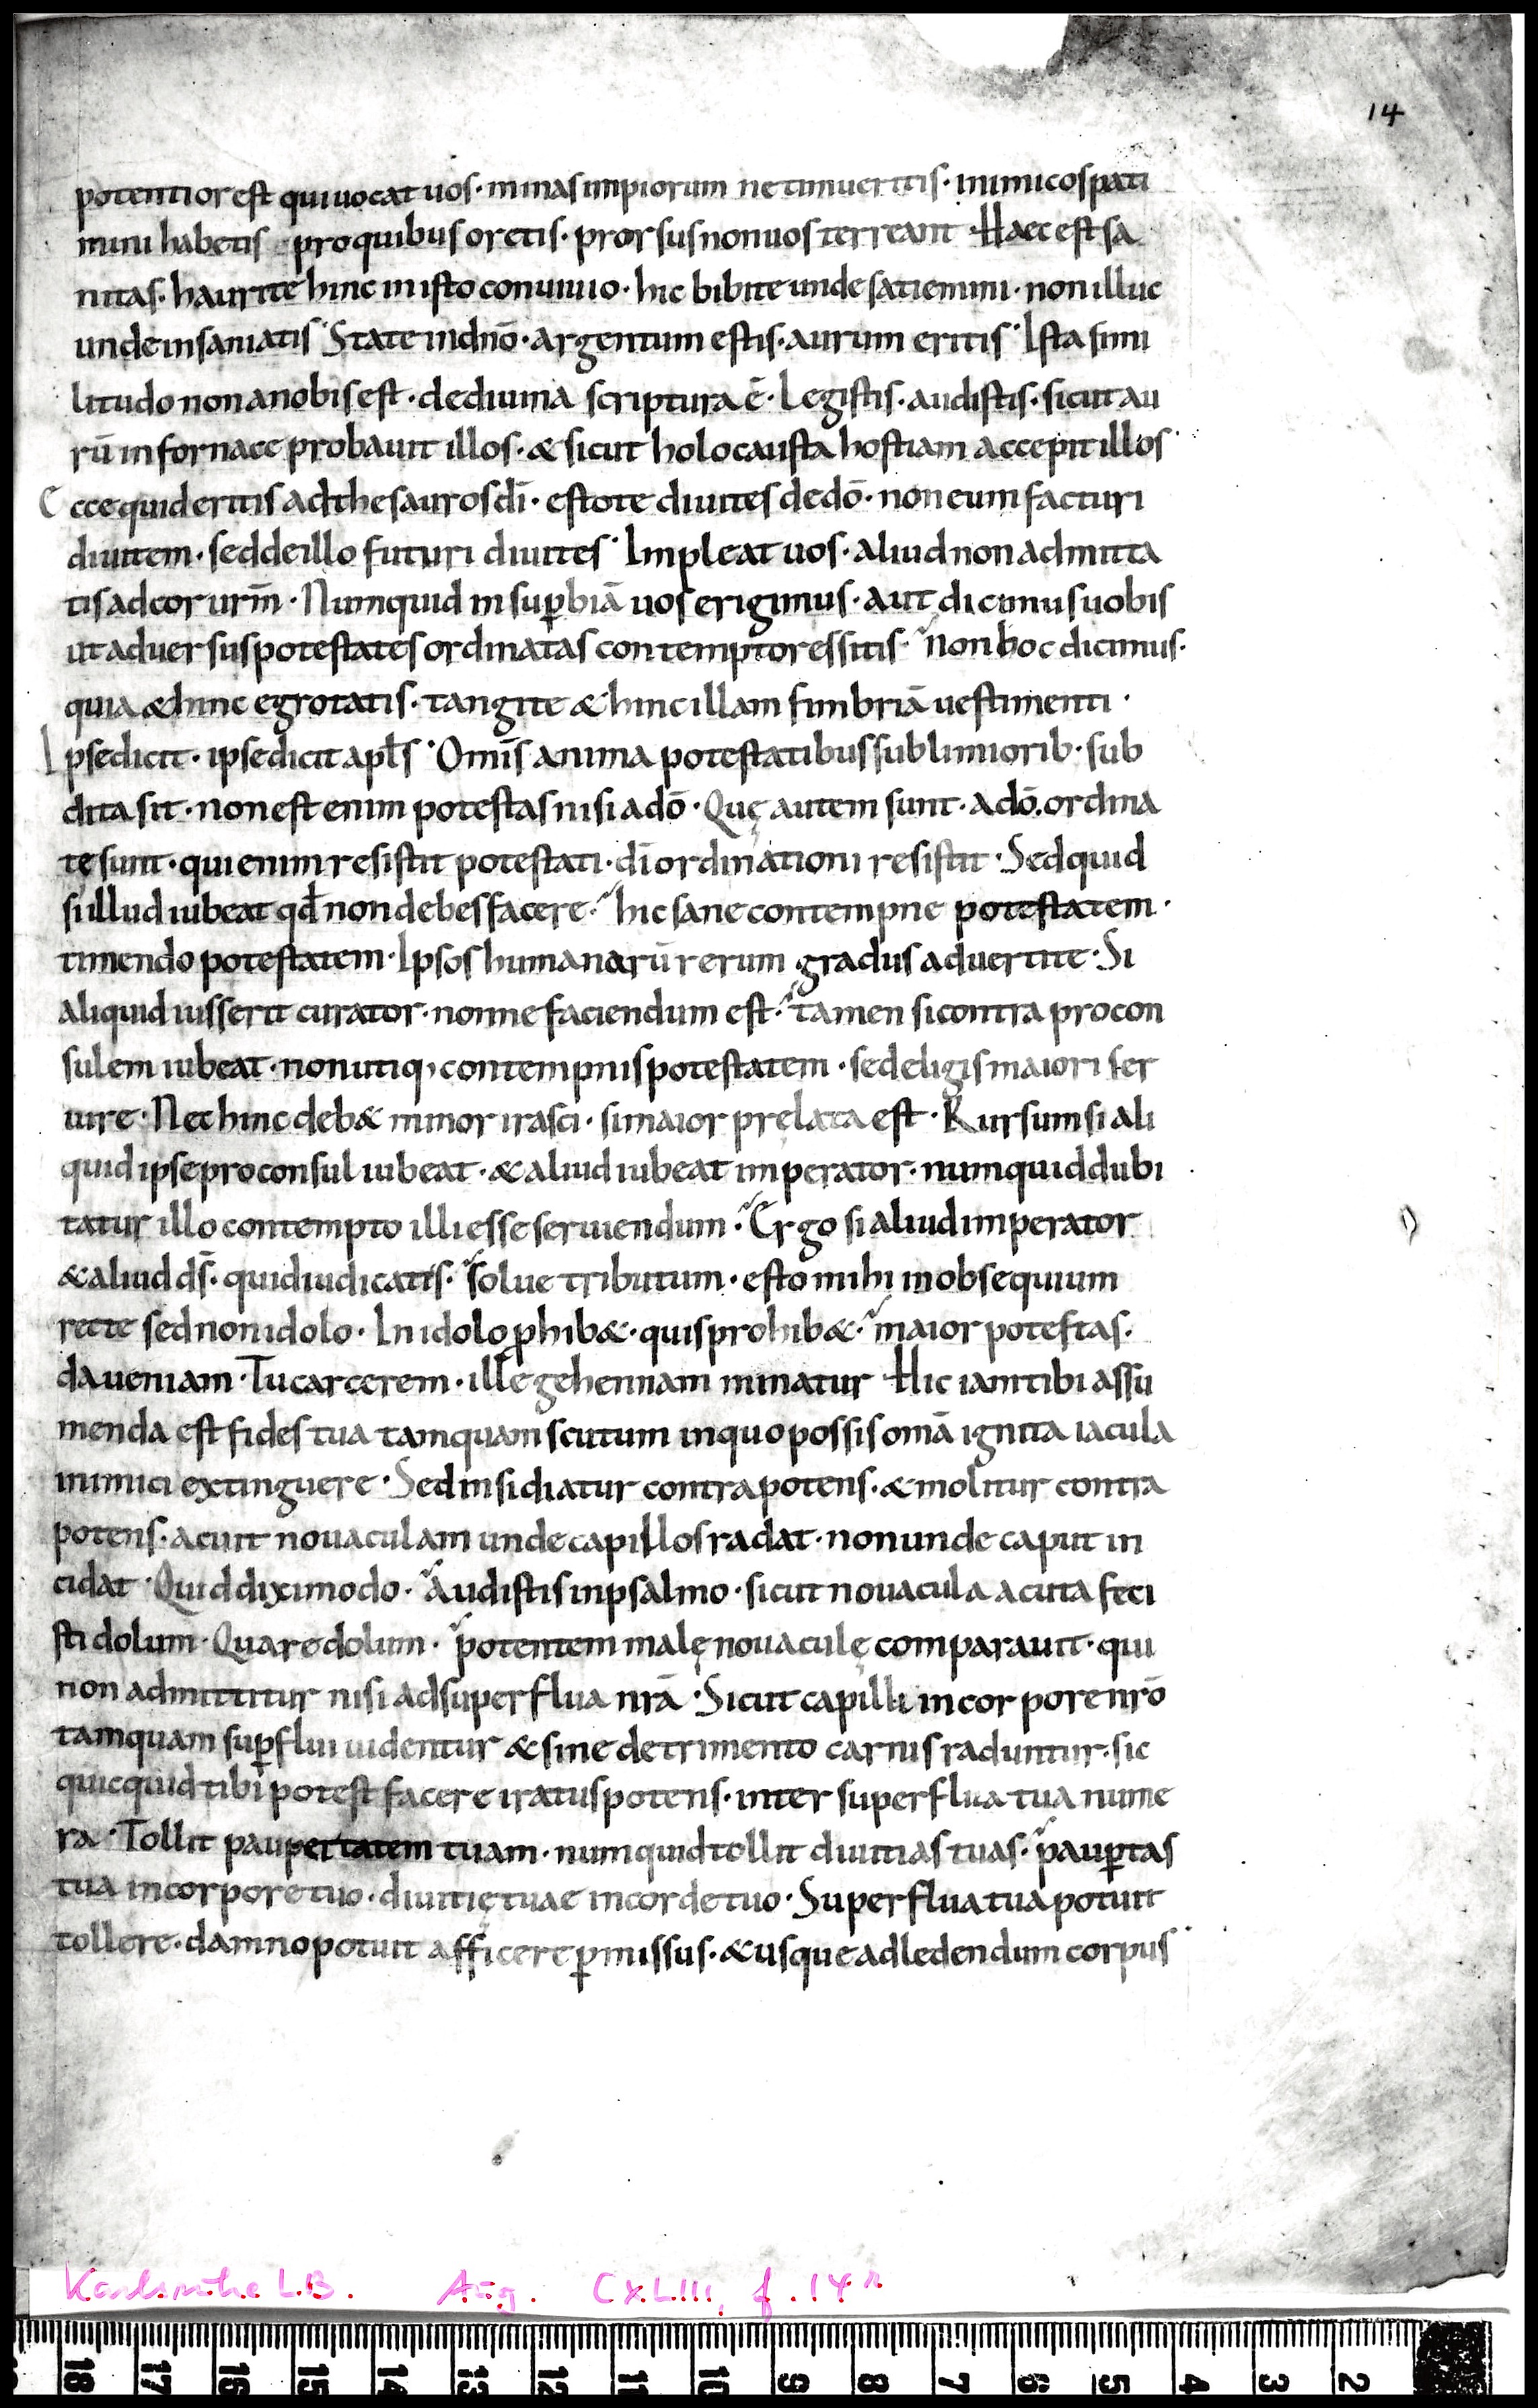 14
potentior est qui uocat uos · minas impiorum ne timueritis · inimicos pati
mini habetis pro quibus oretis · prorsus non uos terreant · Haec est sa
nitas · haurite hinc in isto conuiuio · hic bibite unde satiemini · non illuc
unde insaniatis · State in dnō · argentum estis · aurum eritis · Ista simi
litudo non a nobis est · de diuina scriptura ē · Legistis · audistis · sicut au
rū in fornace probauit illos · & sicut holocausta hostiam accepit illos ·
Ecce quid eritis ad thesauros dī · estote diuites de dō · non eum facturi
diuitem · sed de illo futuri diuites · Impleat uos · aliud non admitta
tis ad cor urm̄ · Numquid in sup̱biā uos erigimus · aut dicimus uobis
ut aduersus potestates ordinatas contemptores sitis · non hoc dicimus ·
quia & hinc egrotatis · tangite & hinc illam fimbriā uestimenti ·
Ipse dicit · ipse dicit apl̄s · Omīs anima potestatibus sublimiorib · sub
dita sit · non est enim potestas nisi a dō · Quę autem sunt · a dō · ordina
tę sunt · qui enim resistit potestati · dī ordinationi resistit · Sed quid
si illud iubeat qd̄ non debes facere · hic sane contempne potestatem ·
timendo potestatem · Ipsos humanarū rerum gradus aduertite · Si
aliquid iusserit curator · nonne faciendum est · tamen si contra procon
sulem iubeat · non utiq; contempnis potestatem · sed eligis maiori ser
uire · Nec hinc deb& minor irasci · si maior prelata est · Rursum si ali
quid ipse proconsul iubeat · & aliud iubeat imperator · numquid dubi
tatur illo contempto illi esse seruiendum · Ergo si aliud imperator
& aliud ds̄ · quid iudicatis · solue tributum · esto mihi in obsequium
recte sed non idolo · In idolo ꝓhib& · quis prohib& · maior potestas ·
da ueniam · Tu carcerem · ille gehennam minatur · Hic iam tibi assu
menda est fides tua tamquam scutum in quo possis omā ignita iacula
inimici extinguere · Sed insidiatur contra potens · & molitur contra
potens · acuit nouaculam unde capillos radat · non unde caput in
cidat · Quid dixi modo · Audistis in psalmo · sicut nouacula acuta feci
sti dolum · Quare dolum · potentem malę nouaculę comparauit · qui
non admittitur nisi ad superflua nrā · Sicut capilli in corpore nrō
tamquam sup̱flui uidentur & sine detrimento carnis raduntur · sic
quicquid tibi potest facere iratus potens · inter superflua tua nume
ra · Tollit paupertatem tuam · numquid tollit diuitias tuas · paup̱tas
tua in corpore tuo · diuitię tuae in corde tuo · Superflua tua potuit
tollere · damno potuit afficere p̱missus · & usque ad ledendum corpus ·
Karlsruhe L.B. Aug. CXLIII, f. 14r
18 17 16 15 14 13 12 11 10 9 8 7 6 5 4 3 2